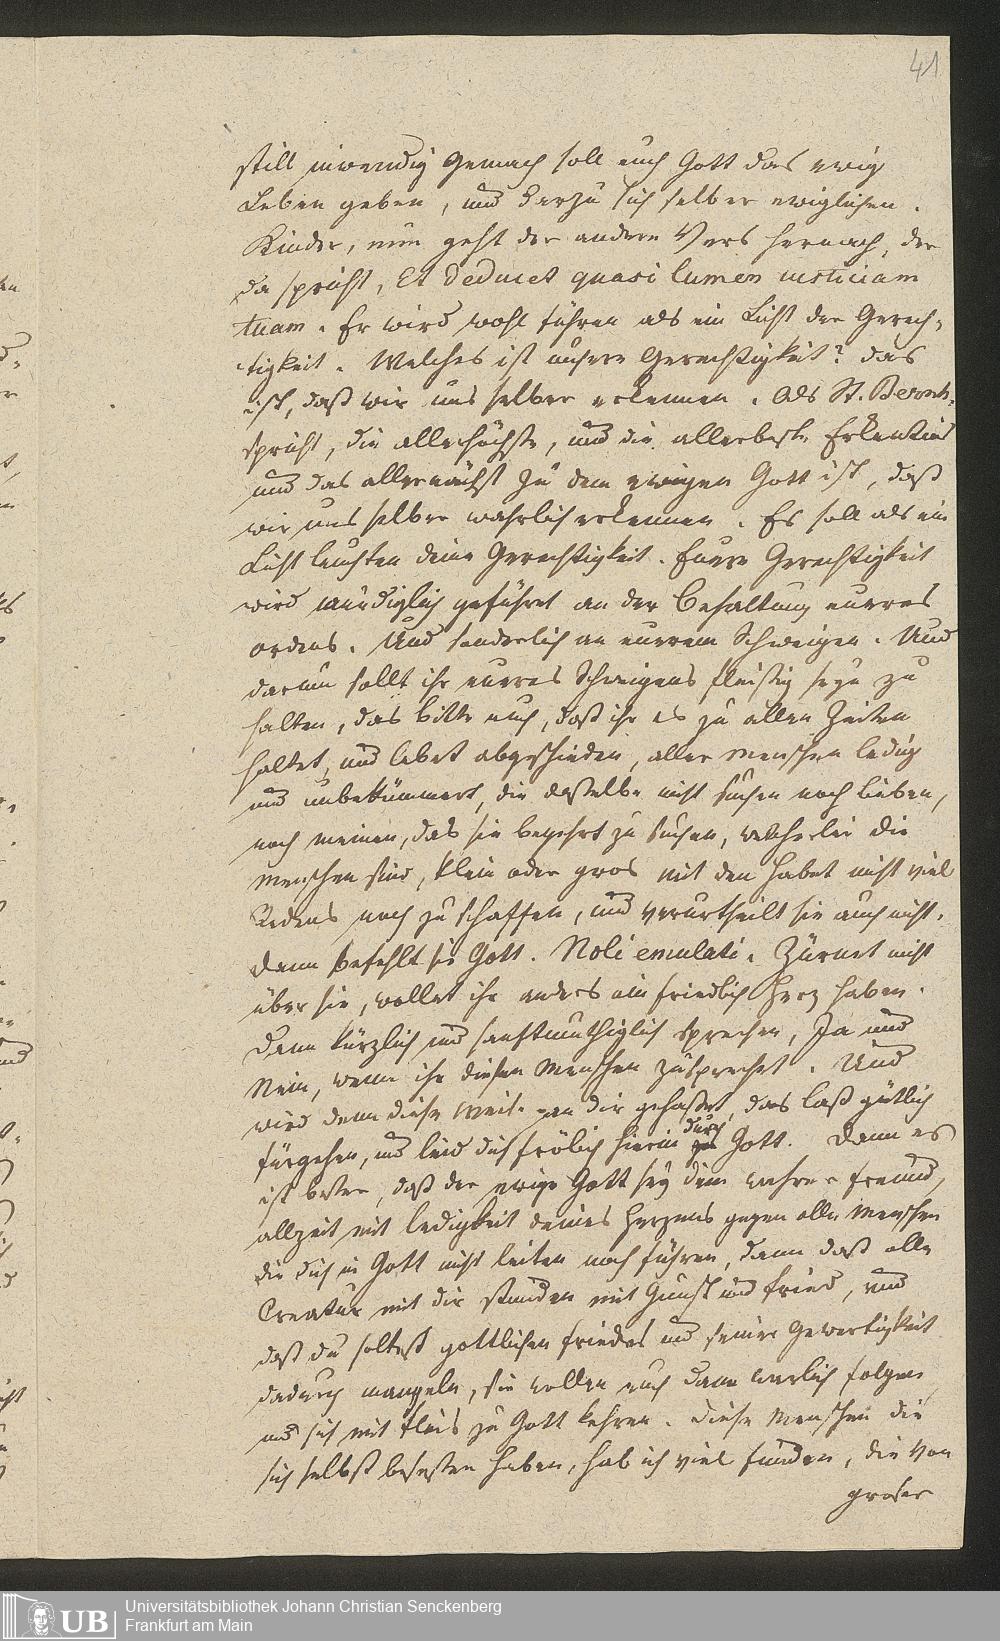 41
still inwendig Gemach soll euch Gott das ewig
Leben geben, und darzu sich selber ewiglichen.
Kinder, nun geht der andere Vers hernach, der
da spricht, Et deducet quasi lumen iusticiam
tuam. Er wird wohl führen als ein Licht der Gerech-
tigkeit. Welches ist unsere Gerechtigkeit? das
ist, daß wir uns selber erkennen. Als St. Bernh.
spricht, die allerhöchste, und die allerbeste Erkentnis
und das allernächst zu dem ewigen Gott ist, daß
wir uns selber wahrlich erkennen. Es soll als ein
Licht leuchten deine Gerechtigkeit. Euere Gerechtigkeit
wird würdiglich geführet an der Behaltung eueres
ordens. Und sonderlich an eurem Schweigen. Und
darum sollt ihr eueres Schweigens fleissig seyn zu
halten, das bitte euch, daß ihr es zu allen Zeiten
haltet, und lebet abgeschieden, aller Menschen ledig
und unbekümmert, die dasselbe nicht suchen noch lieben,
noch meinen, das sie begehrt zu suchen, welcherlei die
Menschen sind, klein oder gros mit den habet nicht viel
Redens noch zu schaffen, und verurtheilt sie auch nicht.
dann befehlt sie Gott. Noli emulari. Zürnet nicht
über sie, wollet ihr anders ein friedlich Herz haben.
Dann kürzlich und sanftmuthiglich sprechen, Ja und
Nein, wenn ihr diesen Menschen zusprechet. Und
wird denn diese Weise an dir gehasset, das laß gütlich
fürgehen, und leid dich frölich hierin durch Gott. Dann es
ist besser, daß der ewige Gott sey dein wahrer freund,
allzeit mit ledigkeit deines Herzens gegen allen Menschen
die dich in Gott nicht leiten noch führen, dann daß alle
Creatur mit dir stunden mit Gunst und fried, und
daß du soltest göttlichen friedes und seiner Gewertigkeit
dadurch mangeln, sie wollen euch dann warlich folgen,
und sich mit fleis zu Gott kehren. Diese Menschen die
sich selbst besessen haben, hab ich viel funden, die von
groser
UB
Universitätsbibliothek Johann Christian Senckenberg
Frankfurt am Main